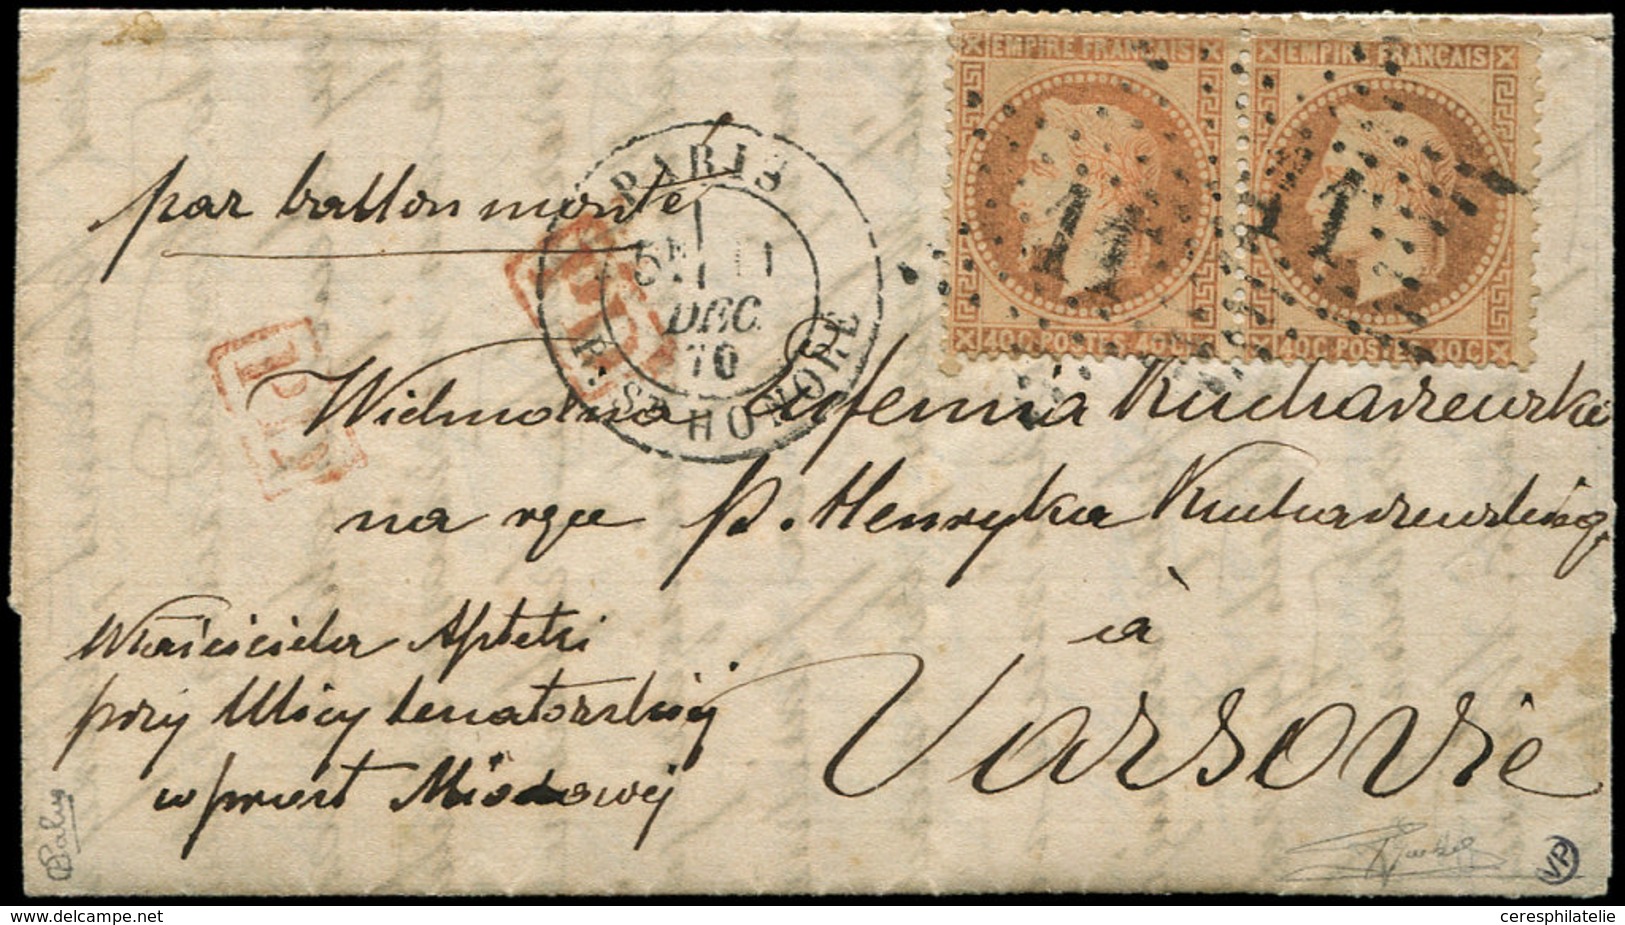 EMPIRE FRANCAIS
EMPIRE FRANCAIS
40C POSTES 40C
40C POSTES 40C
par ballon monté
PARIS
5E 11
DEC.
70
R. ST HONORE
PD
PD
Wielmożna Eufemia Kucharzewska
na ręce p. Henryka Kucharzewskiego
à
Varsovie
Właściciela Apteki
przy Ulicy Senatorskiej
wprost Miodowej
VP
www.delcampe.net
ceresphilatelie